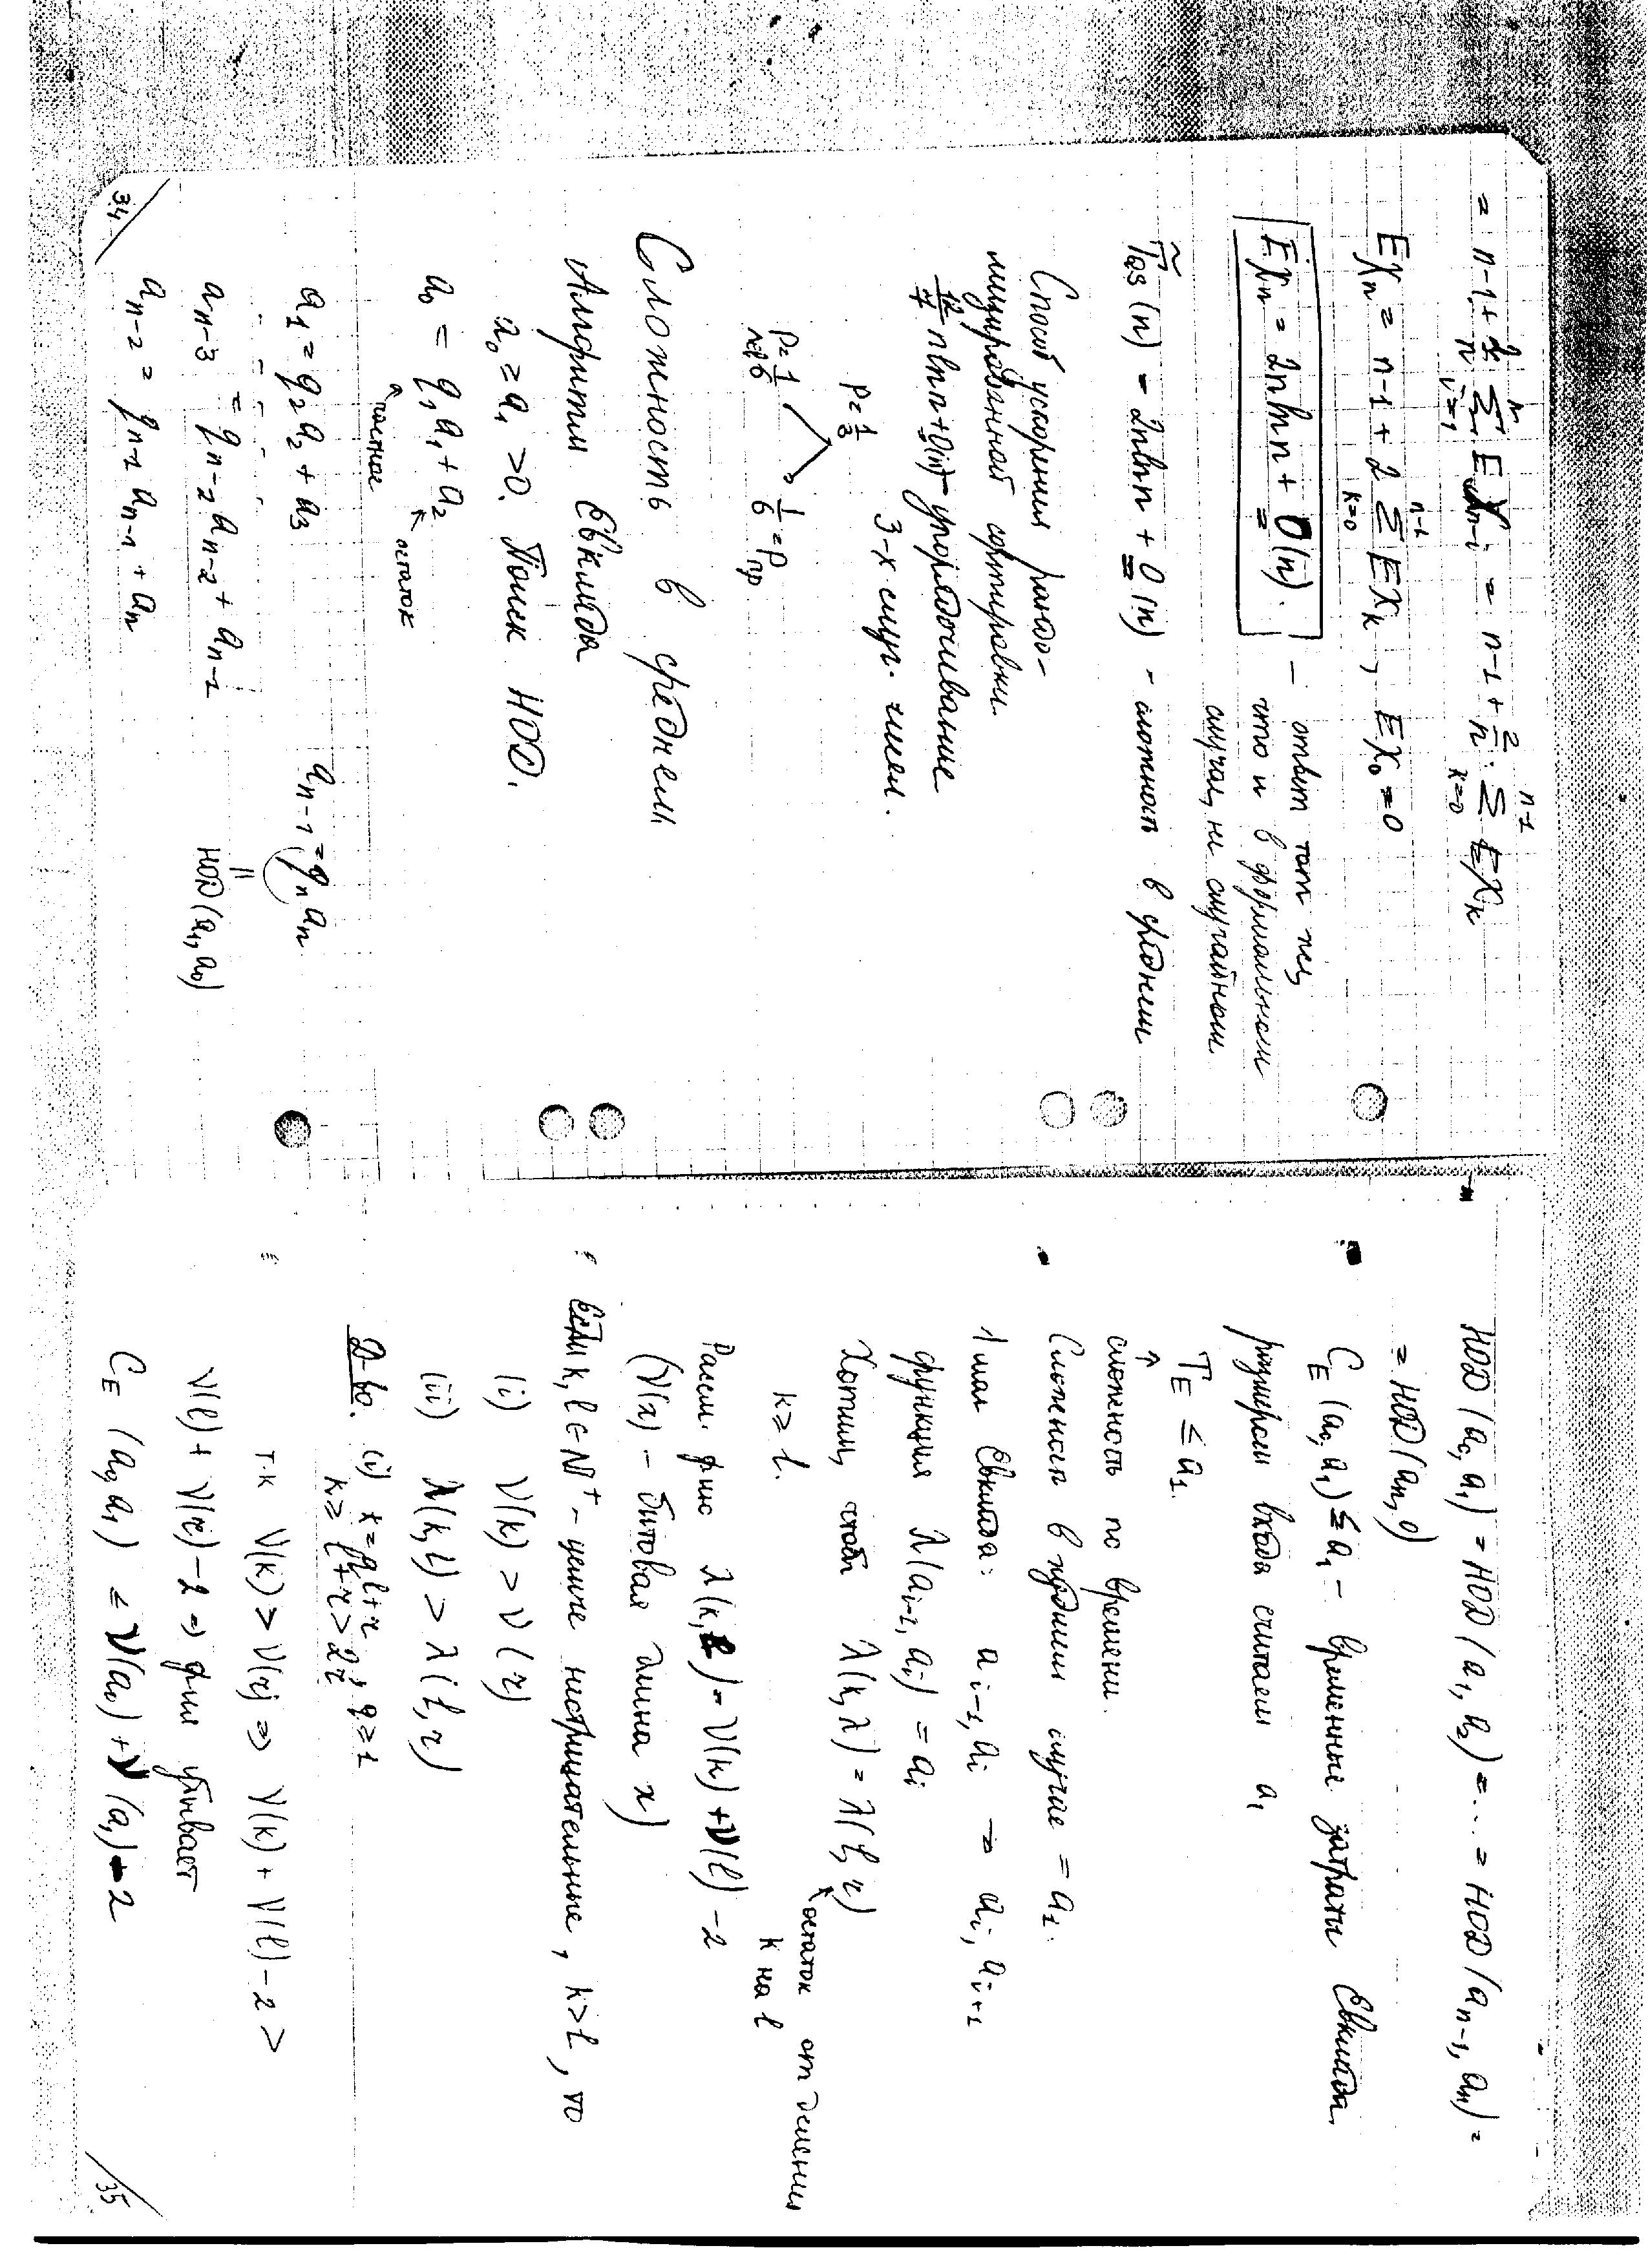 = n-1 + 2/n Σ_{i=1}^{n} E χ_{n-i} = n-1 + 2/n · Σ_{k=0}^{n-1} E χ_k
Eχ_n = n-1 + 2 Σ_{k=0}^{n-1} Eχ_k, Eχ_0 = 0
Eχ_n = 2n ln n + O(n). — ответ тот же,
что и в формальном
случае, не случайном
T̃_QS (n) = 2n ln n + O(n) - сложность в среднем
Способ ускорения рандо-
мизированной сортировки.
12/7 n ln n + O(n) - упорядочивание
3-х случ. чисел.
P = 1/3
P_лев = 1/6
1/6 = P_пр
Сложность в среднем
Алгоритм Евклида
a_0 ≥ a_1 > 0. Поиск НОД.
a_0 = q_1 a_1 + a_2
частное
остаток
a_1 = q_2 a_2 + a_3
a_{n-3} = q_{n-2} a_{n-2} + a_{n-1}
a_{n-2} = q_{n-1} a_{n-1} + a_n
a_{n-1} = q_n a_n
НОД(a_1, a_0)
34
НОД (a_0, a_1) = НОД (a_1, a_2) = ... = НОД (a_{n-1}, a_n) =
= НОД (a_n, 0)
C_E (a_0, a_1) ≤ a_1 - временные затраты Евклида.
размером входа считаем a_1
T_E ≤ a_1.
сложность по времени.
Сложность в худшем случае = a_1.
1 шаг Евклида: a_{i-1}, a_i → a_i, a_{i+1}
функция λ(a_{i-1}, a_i) = a_i
Хотим, чтобы λ(k, λ) = λ(l, r)
остаток от деления
k на l
k ≥ l.
Рассм. ф-ию λ(k, l) = ν(k) + ν(l) - 2
(ν(x) - битовая длина x)
Если k, l ∈ N⁺ - целые неотрицательные, k > l, то
(i) ν(k) > ν(r)
(ii) λ(k, l) > λ(l, r)
Д-во. (i) k = ql + r, q ≥ 1
k ≥ l + r > 2r
т.к ν(k) > ν(r) ⇒ ν(k) + ν(l) - 2 >
ν(l) + ν(r) - 2 ⇒ ф-ия убывает
C_E (a_0, a_1) ≤ ν(a_0) + ν(a_1) - 2
35